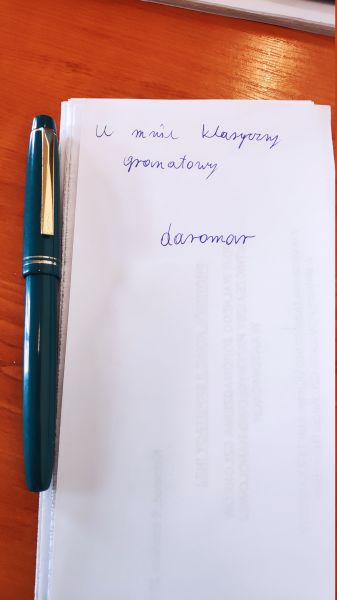 U mnie klasyczny
granatowy
daromar